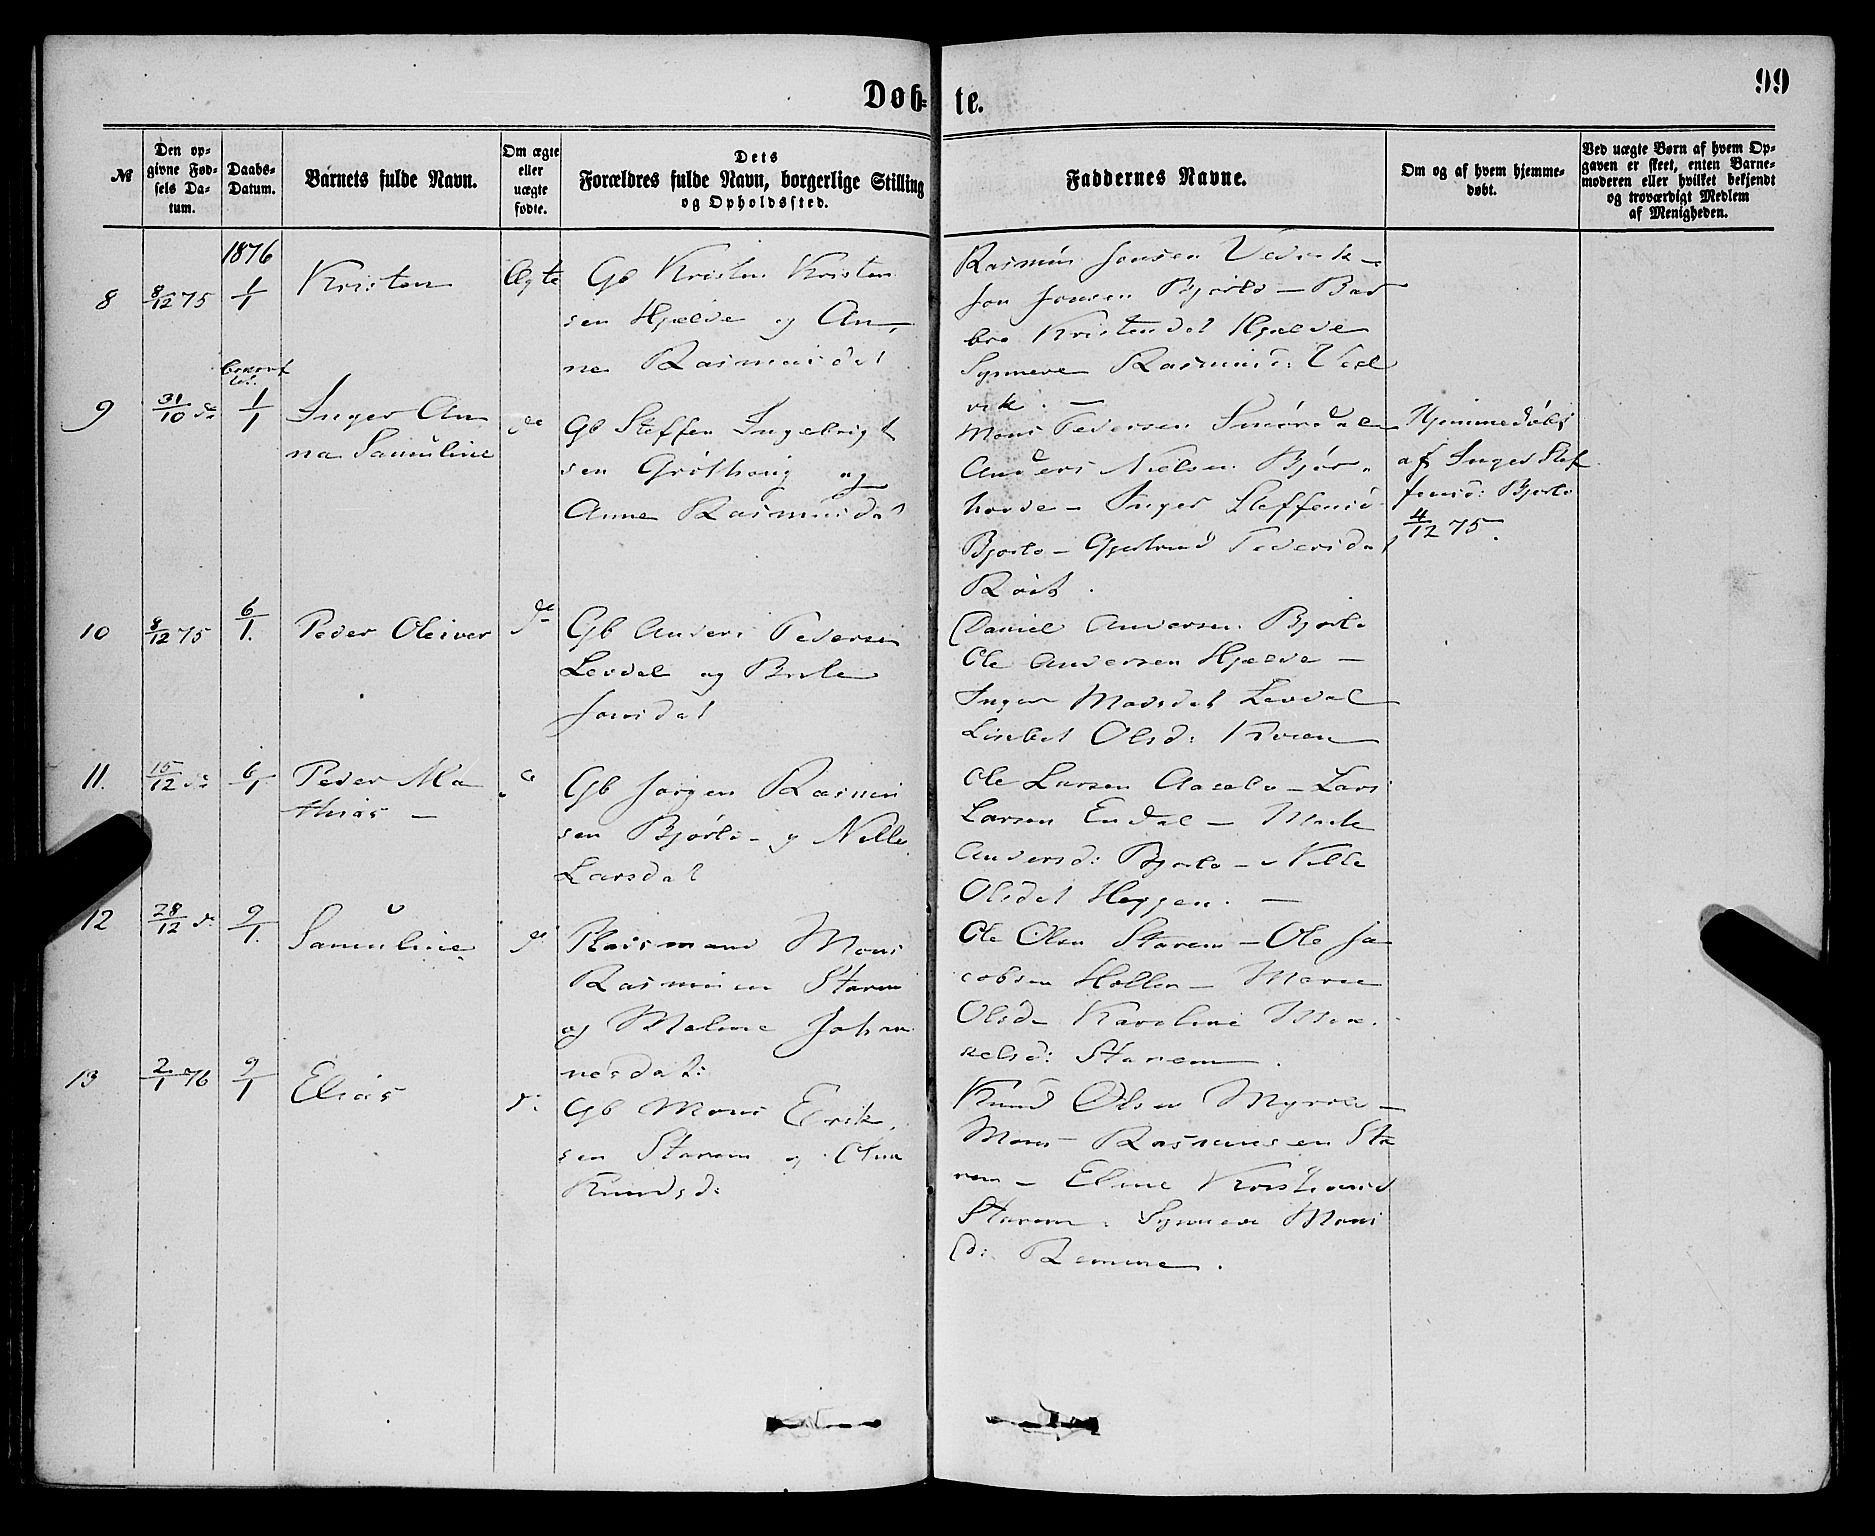 Døb-te.
99
№
Den op-
givne Fød-
sels Da-
tum.
Daabs-
Datum.
Barnets fulde Navn.
Om ægte
eller
uægte
fødte.
Dets
Forældres fulde Navn, borgerlige Stilling
og Opholdssted.
Faddernes Navne.
Om og af hvem hjemme-
døbt.
Ved uægte Børn af hvem Op-
gaven er skeet, enten Barne-
moderen eller hvilket bekjendt
og troværdigt Medlem
af Menigheden.
1876
8
8/12 75
1/1
Kristen
Ægte
Gb Kristen Kristen
sen Hjælde og An-
ne Rasmusdat
Rasmus Jonsen Vedvik -
Jon Jonsen Bjørlo - Bar
bro Kristendat Hjælde
Synneve Rasmusd: Ved
vik. -
9
31/10 do
1/1
Inger An
na Samuline
do
Gb Steffen Ingebrigt
sen Grøthoug og
Anne Rasmusdat
Mons Pedersen Smørdal
Anders Nielsen Bjør-
hovde - Inger Steffensd
Bjørlo - Gjertrud Pedersdat
Hjemmedøbt
af Inger Stef
fensd: Bjørlo
4/12 75.
10
8/12 75
6/1.
Peder Oleiver
do
Gb Anders Pedersen
Levdal og Berte
Jonsdat
Daniel Andersen Bjørlo
Ole Andersen Hjælde -
Inger Madsdat Levdal
Lisbet Olsd:
11.
15/12 do
6/1
Peder Ma
thias -
do
Gb Jørgen Rasmus
sen Bjørlo - og Nille
Larsdat
Ole Larsen Aasebø - Lars
Larsen Endal -
Andersd: Bjørlo - Nille
Olsdat Heggen. -
12
28/12 do
9/1.
Samuline
do
Pladsmand Mons
Rasmusen Starem
og Malene Johan
nesdat:
Ole Olsen Starem - Ole Ja
cobsen Hollen - Marie
Olsd- Karoline Mik
kelsd: Starem.
13
2/1 76
9/1
Elias
do
Gb Mons Erik
sen Starem og Olina
Knudsd:
Knud Olsen Myrold -
Mons Rasmusen Sta
rem - Eline Kristiansd
Starem. Synneve Mons
d: Remme.